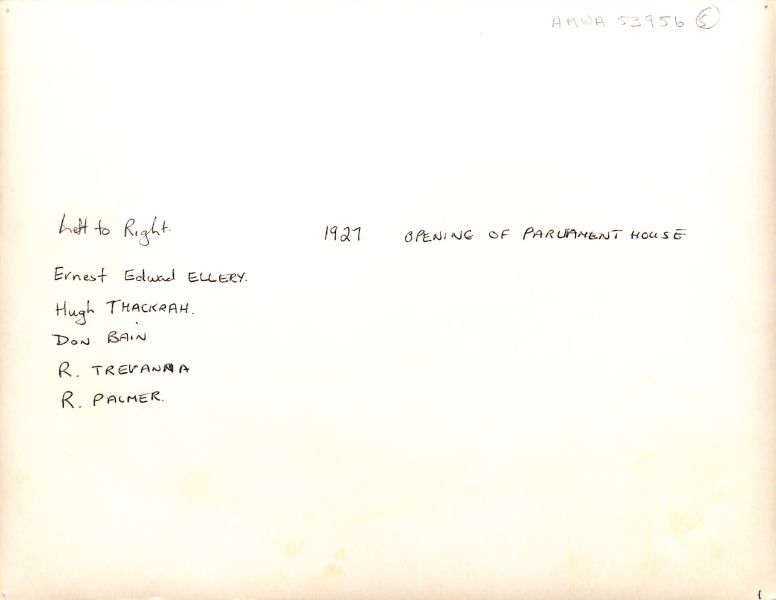 AMWA 53956 5
Left to Right.
1927 OPENING OF PARLIAMENT HOUSE
Ernest Edward ELLERY.
Hugh THACKRAH.
DON BAIN
R. TREVANNA
R. PALMER.